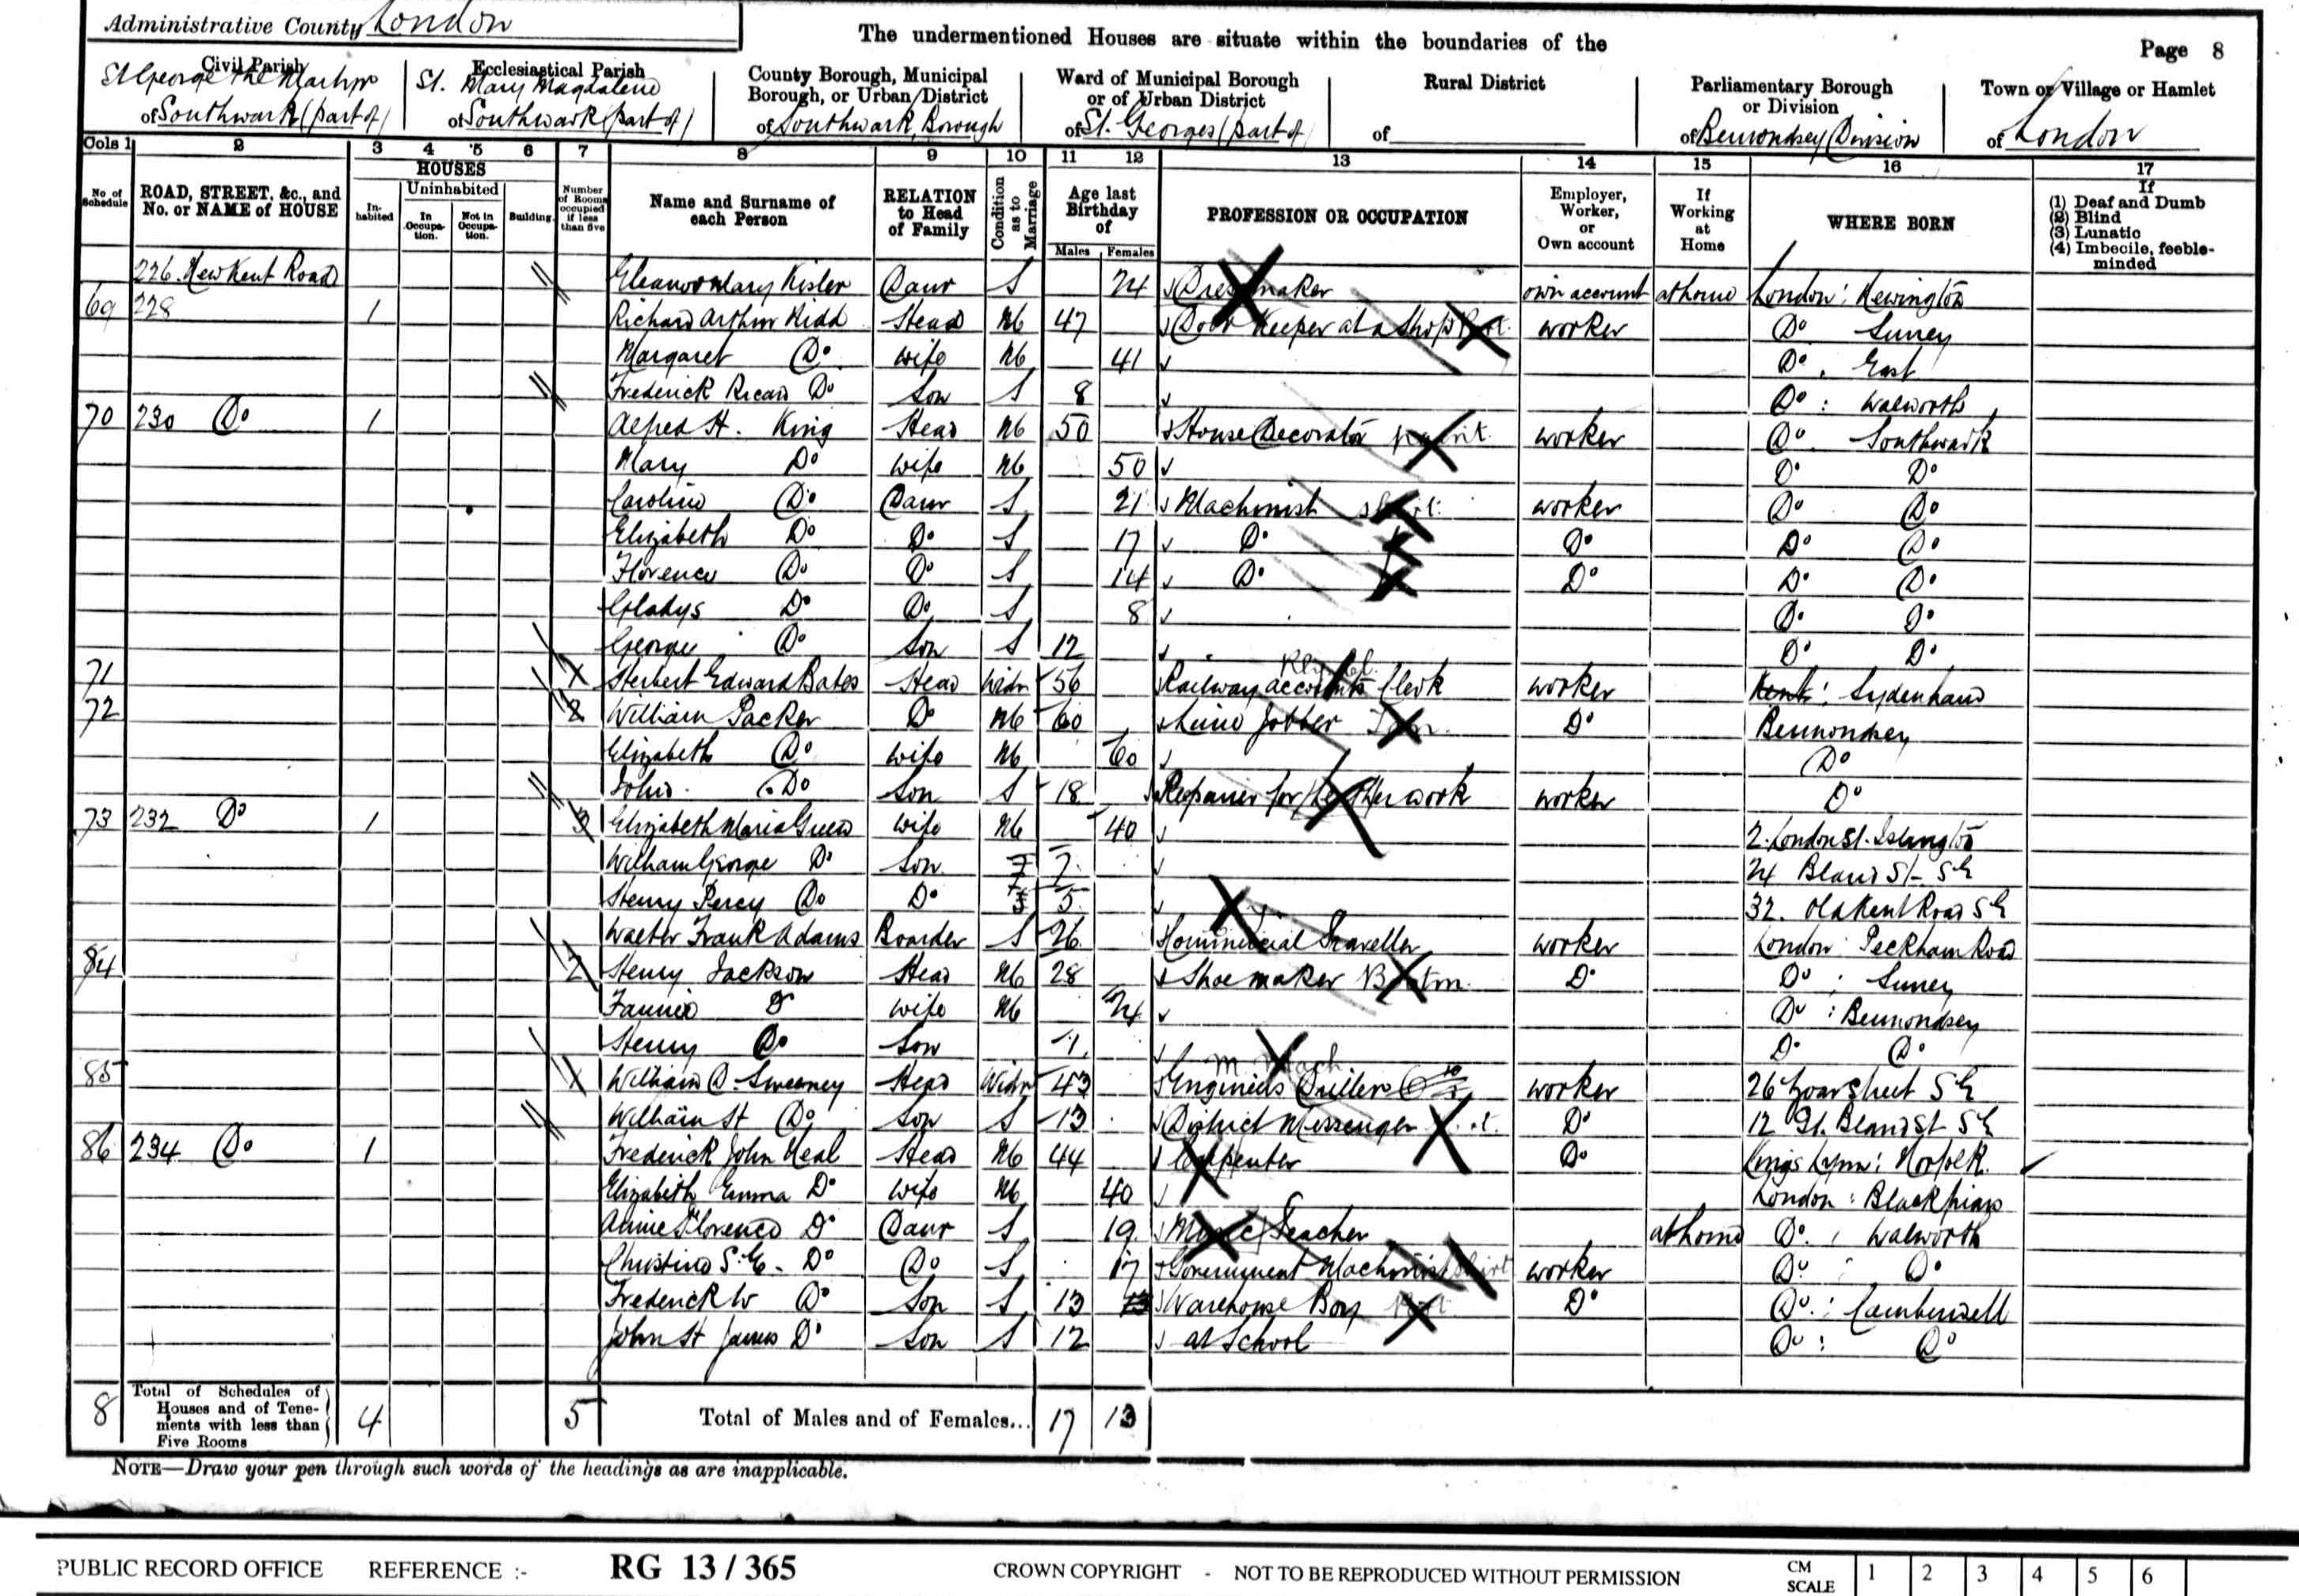 Administrative County London
The undermentioned Houses are situate within the boundaries of the
Page 8
Civil Parish
St George the Martyr
of Southwark (part of)
Ecclesiastical Parish
St. Mary Magdalene
of Southwark (part of)
County Borough, Municipal
Borough, or Urban District
of Southwark Borough
Ward of Municipal Borough
or of Urban District
of St. Georges (part of)
Rural District
of
Parliamentary Borough
or Division
of Bermondsey Division
Town or Village or Hamlet
of London
Cols 1 2 3 4 5 6 7 8 9 10 11 12 13 14 15 16 17
No. of Schedule
ROAD, STREET, &c., and No. or NAME of HOUSE
HOUSES
In-habited
Uninhabited
In Occupa-tion.
Not in Occupa-tion.
Building.
Number of Rooms occupied if less than five
Name and Surname of each Person
RELATION to Head of Family
Condition as to Marriage
Age last Birthday of
Males Females
PROFESSION OR OCCUPATION
Employer, Worker, or Own account
If Working at Home
WHERE BORN
If
(1) Deaf and Dumb
(2) Blind
(3) Lunatic
(4) Imbecile, feeble-minded
226 New Kent Road Eleanor Mary Kisler Daur S 24 Dressmaker own account at home London: Newington
69 228 1 Richard Arthur Kidd Head M 47 Door Keeper at a Shop worker Do Surrey
Margaret Do wife M 41 Do. East
Frederick Ricard Do Son S 8 Do: Walworth
70 230 Do 1 Alfred H. King Head M 50 House Decorator worker Do. Southwark
Mary Do wife M 50 Do Do
Caroline Do Daur S 21 Machinist Shirt worker Do Do
Elizabeth Do Do S 17 Do Do Do Do
Florence Do Do S 14 Do Do Do Do
Gladys Do Do S 8 Do Do
George Do Son S 12 Do Do
71 1 Herbert Edward Bates Head Widr 56 Railway accounts Clerk worker Kent: Sydenham
72 2 William Packer Do M 60 Lime Jobber Do Bermondsey
Elizabeth Do wife M 60 Do
John Do Son S 18 Repairer for leather work worker Do
73 232 Do 1 3 Elizabeth Maria Green wife M 40 2. London St. Islington
William George Do Son 7 24 Bland St S E
Henry Percy Do Do 5 32. Old Kent Road S E
Walter Frank Adams Boarder S 26 Commercial Traveller worker London Peckham Road
84 2 Henry Jackson Head M 28 Shoe maker Do Do; Surrey
Fannie Do wife M 24 Do: Bermondsey
Henry Do Son 1 Do Do
85 1 William D. Sweeney Head Widr 43 Engineers Driller worker 26 Zoar street S E
William H Do Son S 13 District Messenger Do 12 Gt. Bland St S E
86 234 Do 1 Frederick John Neal Head M 44 Carpenter Do Kings Lynn: Norfolk
Elizabeth Emma Do wife M 40 London: Blackfriars
Annie Florence Do Daur S 19 Music Teacher at home Do. Walworth
Christina S. E. Do Do S 17 Government Machinist Shirt worker Do Do
Frederick W Do Son S 13 Warehouse Boy Do Do: Camberwell
John H James Do Son S 12 at School Do: Do
8 Total of Schedules of Houses and of Tene-ments with less than Five Rooms 4 5 Total of Males and of Females... 17 13
NOTE—Draw your pen through such words of the headings as are inapplicable.
PUBLIC RECORD OFFICE REFERENCE :- RG 13 / 365 CROWN COPYRIGHT - NOT TO BE REPRODUCED WITHOUT PERMISSION CM SCALE 1 2 3 4 5 6